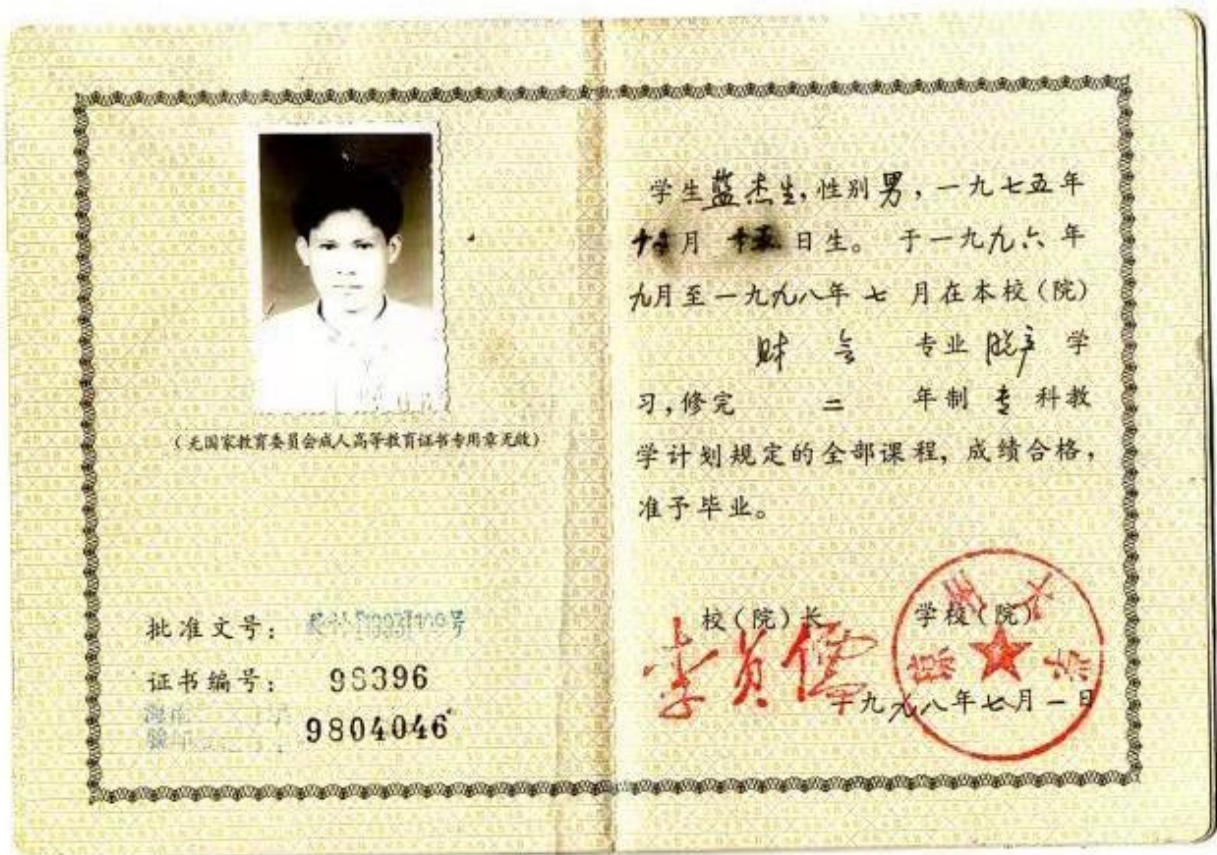 （无国家教育委员会成人高等教育证书专用章无效）
批准文号：
证书编号： 98396
9804046
学生蓝杰生，性别男，一九七五年
月 日生。 于一九九六年
九月至一九九八年 七 月在本校（院）
财会 专业 脱产 学
习，修完 二 年制 专 科教
学计划规定的全部课程，成绩合格，
准予毕业。
校（院）长 学校（院）
李贞儒
琼州大学
一九九八年七月一日